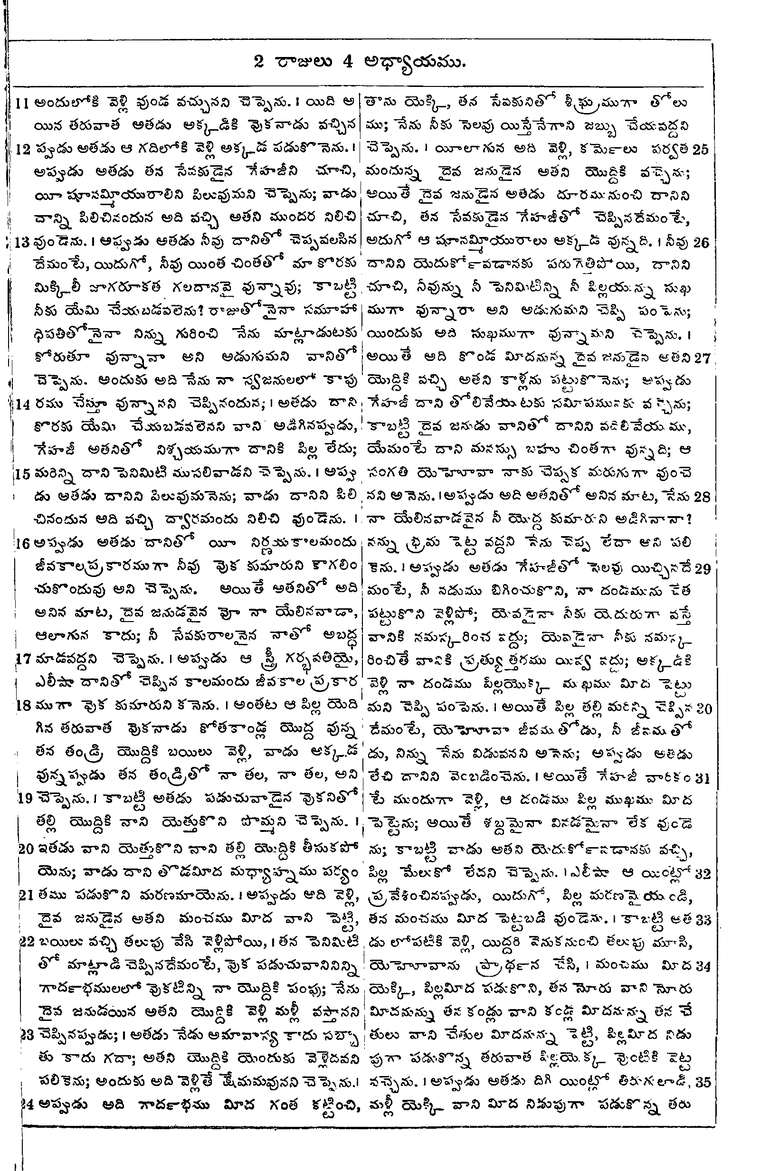 2 రాజులు 4 అధ్యాయము.
11 అందులోకి వెళ్లి వుండ వచ్చునని చెప్పెను. । యిది అ
యిన తరువాత అతడు అక్కడికి వొకనాడు వచ్చిన
12 ప్పుడు అతడు ఆ గదిలోకి వెళ్లి అక్కడ పడుకొనెను. ।
అప్పుడు అతడు తన సేవకుడైన గేహజీని చూచి,
యీ షూనమ్మీయురాలిని పిలువుమని చెప్పెను; వాడు
దాన్ని పిలిచినందున అది వచ్చి అతని ముందర నిలిచి
13 వుండెను. । అప్పుడు అతడు నీవు దానితో చెప్పవలసిన
దేమంటే, యిదుగో, నీవు యింత చింతతో మా కొరకు
మిక్కిలీ జాగరూకత గలదానవై వున్నావు; కాబట్టి
నీకు యేమి చేయబడవలెను? రాజుతోనైనా సమూహా
ధిపతితోనైనా నిన్ను గురించి నేను మాట్లాడుటకు
కోరుతూ వున్నావా అని అడుగుమని వానితో
చెప్పెను. అందుకు అది నేను నా స్వజనులలో కాపు
14 రము చేస్తూ వున్నానని చెప్పినందున; । అతడు దాని
కొరకు యేమి చేయబడవలెనని వాని అడిగినప్పుడు,
గేహజీ అతనితో నిశ్చయముగా దానికి పిల్ల లేదు;
15 మరిన్ని దాని పెనిమిటి ముసలివాడని చెప్పెను. । అప్పు
డు అతడు దానిని పిలువుమనెను; వాడు దానిని పిలి
చినందున అది వచ్చి ద్వారమందు నిలిచి వుండెను. ।
16 అప్పుడు అతడు దానితో యీ నిర్ణయకాలమందు
జీవకాలప్రకారముగా నీవు వొక కుమారుని కాగలిం
చుకొందువు అని చెప్పెను. అయితే అతనితో అది
అనిన మాట, దైవ జనుడవైన వో నా యేలినవాడా,
ఆలాగున కాదు; నీ సేవకురాలనైన నాతో అబద్ధ
17 మాడవద్దని చెప్పెను. । అప్పుడు ఆ స్త్రీ గర్భవతియై,
ఎలీషా దానితో చెప్పిన కాలమందు జీవకాల ప్రకార
18 ముగా వొక కుమారుని కనెను. । అంతట ఆ పిల్ల యెది
గిన తరువాత వొకనాడు కోతకాండ్ల యొద్ద వున్న
తన తండ్రి యొద్దికి బయిలు వెళ్లి, వాడు అక్కడ
వున్నప్పుడు తన తండ్రితో నా తల, నా తల, అని
19 చెప్పెను. । కాబట్టి అతడు పడుచువాడైన వొకనితో
తల్లి యొద్దికి వాని యెత్తుకొని పొమ్మని చెప్పెను. ।
20 ఇతడు వాని యెత్తుకొని వాని తల్లి యొద్దికి తీసుకపో
యెను; వాడు దాని తొడమీద మధ్యాహ్నము పర్యం
21 తము పడుకొని మరణమాయెను. । అప్పుడు ఆది వెళ్లి,
దైవ జనుడైన అతని మంచము మీద వాని పెట్టి,
22 బయిలు వచ్చి తలుపు వేసి వెళ్లిపోయి, । తన పెనిమిటి
తో మాట్లాడి చెప్పినదేమంటే, వొక పడుచువానినిన్ని
గాడిదలలో వొకటిన్ని నా యొద్దికి పంపు; నేను
దైవ జనుడయిన అతని యొద్దికి వెళ్లి మళ్లీ వస్తానని
23 చెప్పినప్పుడు; । అతడు నేడు అమావాస్య కాదు సబ్బా
తు కాదు గదా; అతని యొద్దికి యెందుకు వెళ్లెదవని
పలికెను; అందుకు అది వెళ్లితే క్షేమమవునని చెప్పెను. ।
24 అప్పుడు అది గాడిద మీద గంత కట్టించి,
తాను యెక్కి, తన సేవకునితో శీఘ్రముగా తోలు
ము; నేను నీకు సెలవు యిస్తేనేగాని జబ్బు చేయవద్దని
చెప్పెను. । యీలాగున అది వెళ్లి, కర్మెలు పర్వత 25
మందున్న దైవ జనుడైన అతని యొద్దికి వచ్చెను;
అయితే దైవ జనుడైన అతడు దూరమునుంచి దానిని
చూచి, తన సేవకుడైన గేహజీతో చెప్పినదేమంటే,
అదుగో ఆ షూనమ్మీయురాలు అక్కడ వున్నది. । నీవు 26
దానిని యెదుర్కోవడానకు పరుగెత్తిపోయి, దానిని
చూచి, నీవున్ను నీ పెనిమిటిన్ని నీ పిల్లయున్ను సుఖ
ముగా వున్నారా అని అడుగుమని చెప్పి పంపెను;
యిందుకు అది సుఖముగా వున్నామని చెప్పెను. ।
అయితే అది కొండ మీదనున్న దైవ జనుడైన అతని 27
యొద్దికి వచ్చి అతని కాళ్లను పట్టుకొనెను; అప్పుడు
గేహజీ దాని తోలివేయుటకు సమీపమునకు వచ్చెను;
కాబట్టి దైవ జనుడు వానితో దానిని వదలివేయుము,
యేమంటే దాని మనస్సు బహు చింతగా వున్నది; ఆ
సంగతి యెహోవా నాకు చెప్పక మరుగుగా వుంచె
నని అనెను. । అప్పుడు అది అతనితో అనిన మాట, నేను 28
నా యేలినవాడవైన నీ యొద్ద కుమారుని అడిగినానా?
నన్ను భ్రమ పెట్ట వద్దని నేను చెప్ప లేదా అని పలి
కెను. । అప్పుడు అతడు గేహజీతో సెలవు యిచ్చినదే 29
మంటే, నీ నడుము బిగించుకొని, నా దండమును చేత
పట్టుకొని వెళ్లిపో; యెవడైనా నీకు యెదురుగా వస్తే
వానికి నమస్కరించ వద్దు; యెవడైనా నీకు నమస్క
రించితే వానికి ప్రత్యుత్తరము యివ్వ వద్దు; అక్కడికి
వెళ్లి నా దండము పిల్లయొక్క ముఖము మీద పెట్టు
మని చెప్పి పంపెను. । అయితే పిల్ల తల్లి మరిన్ని చెప్పిన 30
దేమంటే, యెహోవా జీవముతోడు, నీ జీవముతో
డు, నిన్ను నేను విడువనని అనెను; అప్పుడు అతడు
లేచి దానిని వెంబడించెను. । అయితే గేహజీ వారికం 31
టే ముందుగా వెళ్లి, ఆ దండము పిల్ల ముఖము మీద
పెట్టెను; అయితే శబ్దమైనా వినడమైనా లేక వుండె
ను; కాబట్టి వాడు అతని యెదుర్కోవడానకు వచ్చి,
పిల్ల మేలుకో లేదని చెప్పెను. । ఎలీషా ఆ యింట్లో 32
ప్రవేశించినప్పుడు, యిదుగో, పిల్ల మరణమైయుండి,
తన మంచము మీద పెట్టబడి వుండెను. । కాబట్టి అత 33
డు లోపటికి వెళ్లి, యిద్దరి వెనుకనుంచి తలుపు మూసి,
యెహోవాను ప్రార్థన చేసి, । మంచము మీద 34
యెక్కి, పిల్లమీద పడుకొని, తన నోరు వాని నోరు
మీదనున్ను తన కండ్లు వాని కండ్ల మీదనున్ను తన చే
తులు వాని చేతుల మీదనున్ను పెట్టి, పిల్లమీద నిడు
పుగా పడుకొన్న తరువాత పిల్లయొక్క వొంటికి వెట్ట
వచ్చెను. । అప్పుడు అతడు దిగి యింట్లో తిరుగలాడి, 35
మళ్లీ యెక్కి వాని మీద నిడుపుగా పడుకొన్న తరు